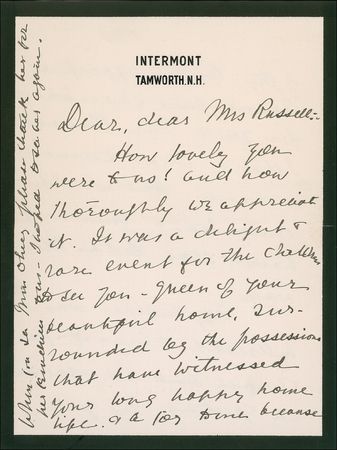 INTERMONT
TAMWORTH.N.H.
Dear, dear Mrs Russell:-
How lovely you
were to us! and how
thoroughly we appreciate
it. It was a delight &
rare event for the children
to see you - queen of your
beautiful home, sur-
rounded by the possessions
that have witnessed
your long happy home
life. & a joy to me because
When you see Miss please thank her for
her kindness to us - I hoped to see her again.